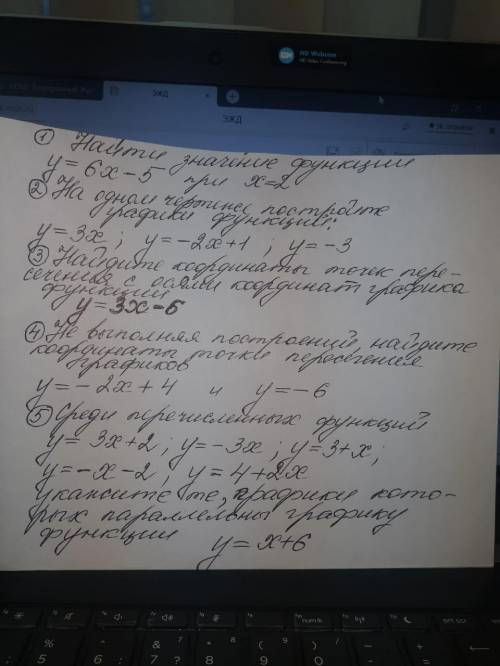 HD Webcam
HD Video Conferencing
ЭЖД
ЭЖД
① Найти значение функции
y = 6x - 5 при x=2
② На одном чертеже постройте
графики функций:
y = 3x ; y = -2x+1 ; y = -3
③ Найдите координаты точек пере-
сечения с осями координат графика
функции
y = 3x - 6
④ Не выполняя построений, найдите
координаты точки пересечения
графиков
y = -2x + 4 и y = -6
⑤ Среди перечисленных функций
y = 3x+2 ; y = -3x ; y = 3+x ;
y = -x-2 , y = 4+2x
укажите те, графики кото-
рых параллельны графику
функции y = x+6